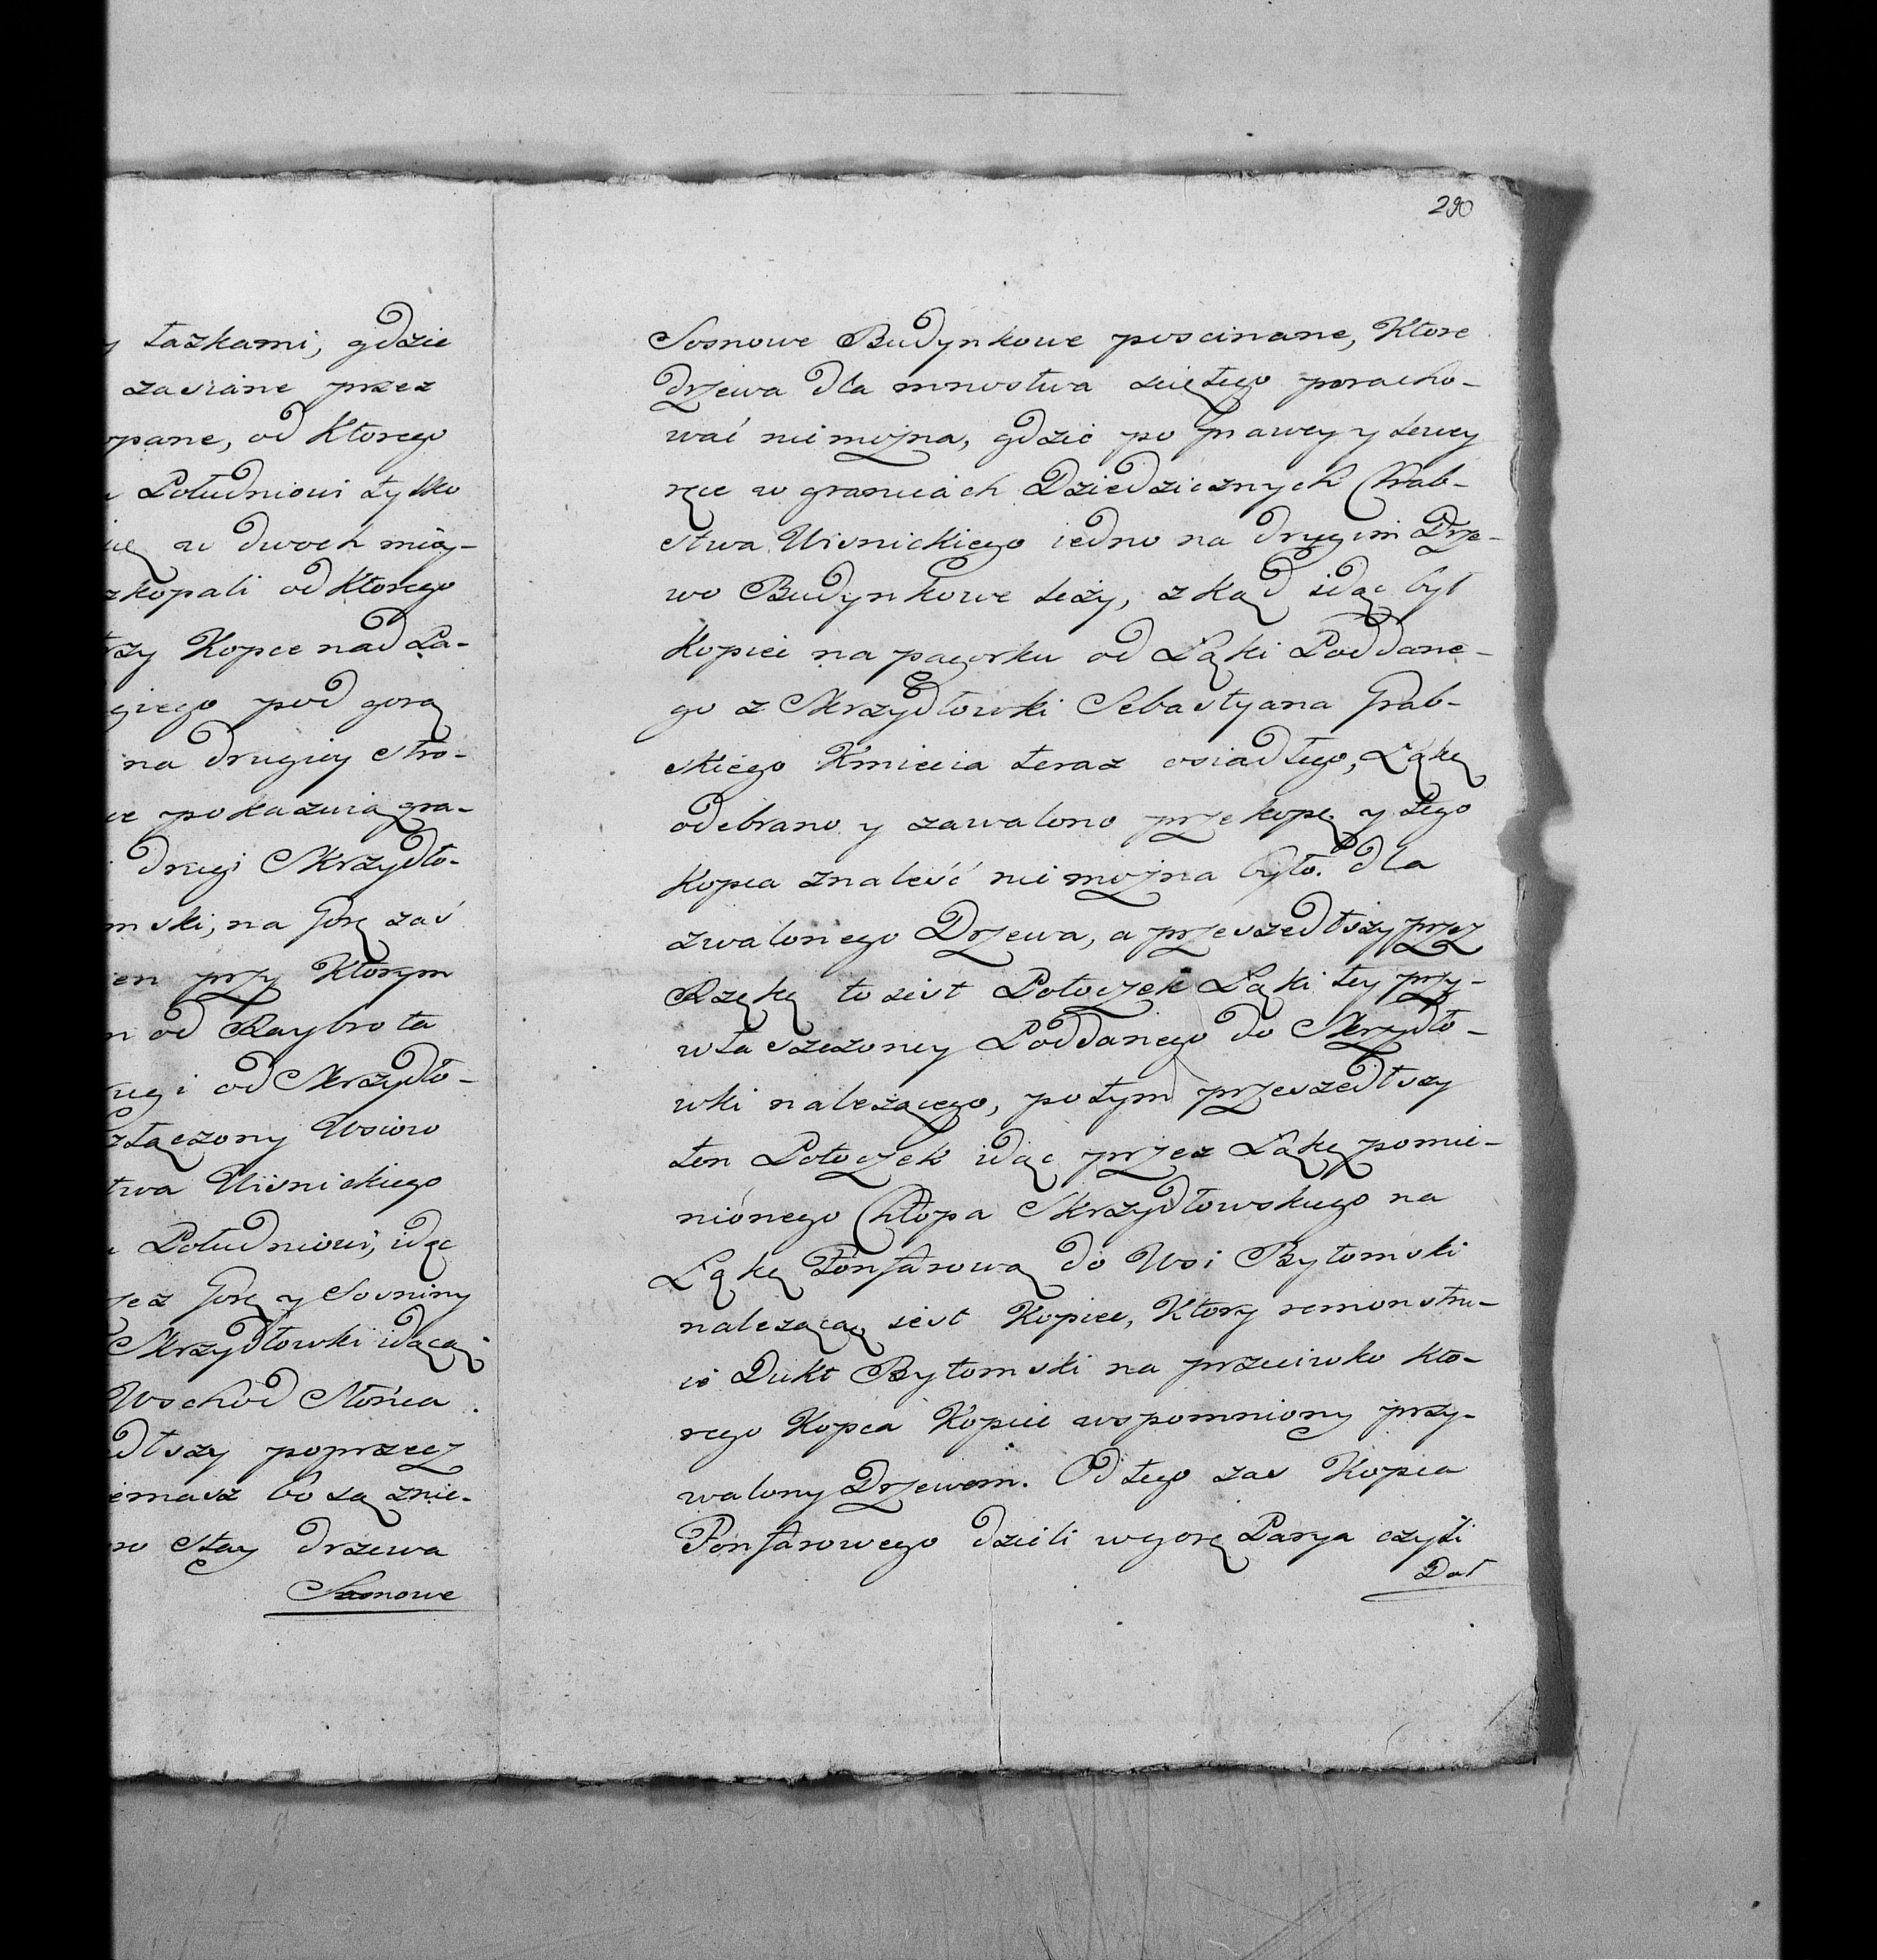 łazkami, gdzie
zasiane przez
opane, od Ktorego
Południowi tylko
w dwoch miey-
zkopali od Ktorego
rzy Kopce nad Pa-
giego pod gorą
na drugiey stro-
pokazuią gra-
drugi Skrzydło-
mski, na Gorę zaś
ien przy Ktorym
n od Raybrota
rugi od Skrzydło-
złączony Wsiow
twa Wisnickiego
Południowi, idąc
rzez Gorę y Sosniny
Skrzydłowki idącą
Wschód Słońca
edłszy poprzecz
iemasz bo są znie-
Stay drzewa
Sosnowe
290
Sosnowe Budynkowe poscinane, Ktore
drzewa dla mnostwa sciętego poracho-
wać nimożna, gdzie po prawey y lewey
ręce w granicach Dziedzicznych Hrab-
stwa Wisnickiego iedno na drugim Drze-
wo Budynkowe leży, zkąd idąc był
Kopiec na pagorku od Łąki Poddane-
go z Skrzydłowki Sebastyana Grab-
skiego Kmiecia teraz osiadłego, Łąkę
odebrano y zawalono przekopę y tego
Kopca znaleść nimożna było. dla
zwalonego Drzewa, a przeszedłszy przez
Rzękę to iest Potoczek Łąki tey przy-
własczoney Poddanego do Skrzydło-
wki należącego, potym przeszedłszy
ten Potoczek idąc przez Łąkę pomie-
nionego Chłopa Skrzydłowskiego na
Łąkę Fonfarową do Wsi Bytomski
należącą, iest Kopiec, Ktory remonstru-
ie Dukt Bytomski na przeciwko kto-
rego Kopca Kopiec wspomniony przy-
walony Drzewem. Od tego zas Kopca
Fonfarowego dzieli wgorę Parya czyli
Doł